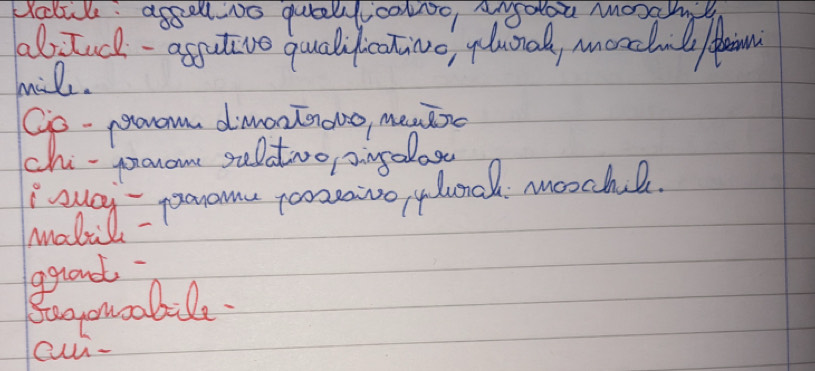 stabile: aggettivo qualificativo, singolare maschile
abituali - aggettivo qualificativo, plurale, maschile/femmi
nile.
Ciò - pronome dimostrativo, neutro
chi - pronome relativo, singolare
i suoi - pronome possessivo, plurale maschile.
mobile -
grande -
responsabile -
cui -